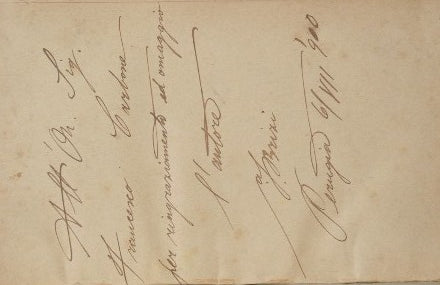 All' On. Sig.
Francesco Carbone
per ringraziamento ed omaggio
l'autore
Brizi
Perugia 6/VII 900